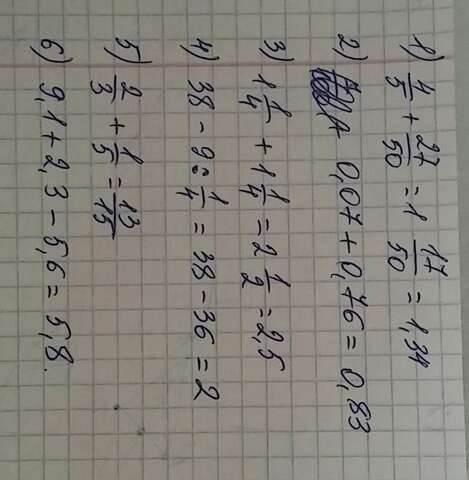 1) 4/5 + 27/50 = 1 17/50 = 1,34
2) 0,07 + 0,76 = 0,83
3) 1 1/4 + 1 1/4 = 2 1/2 = 2,5
4) 38 - 9 : 1/4 = 38 - 36 = 2
5) 2/3 + 1/5 = 13/15
6) 9,1 + 2,3 - 5,6 = 5,8.